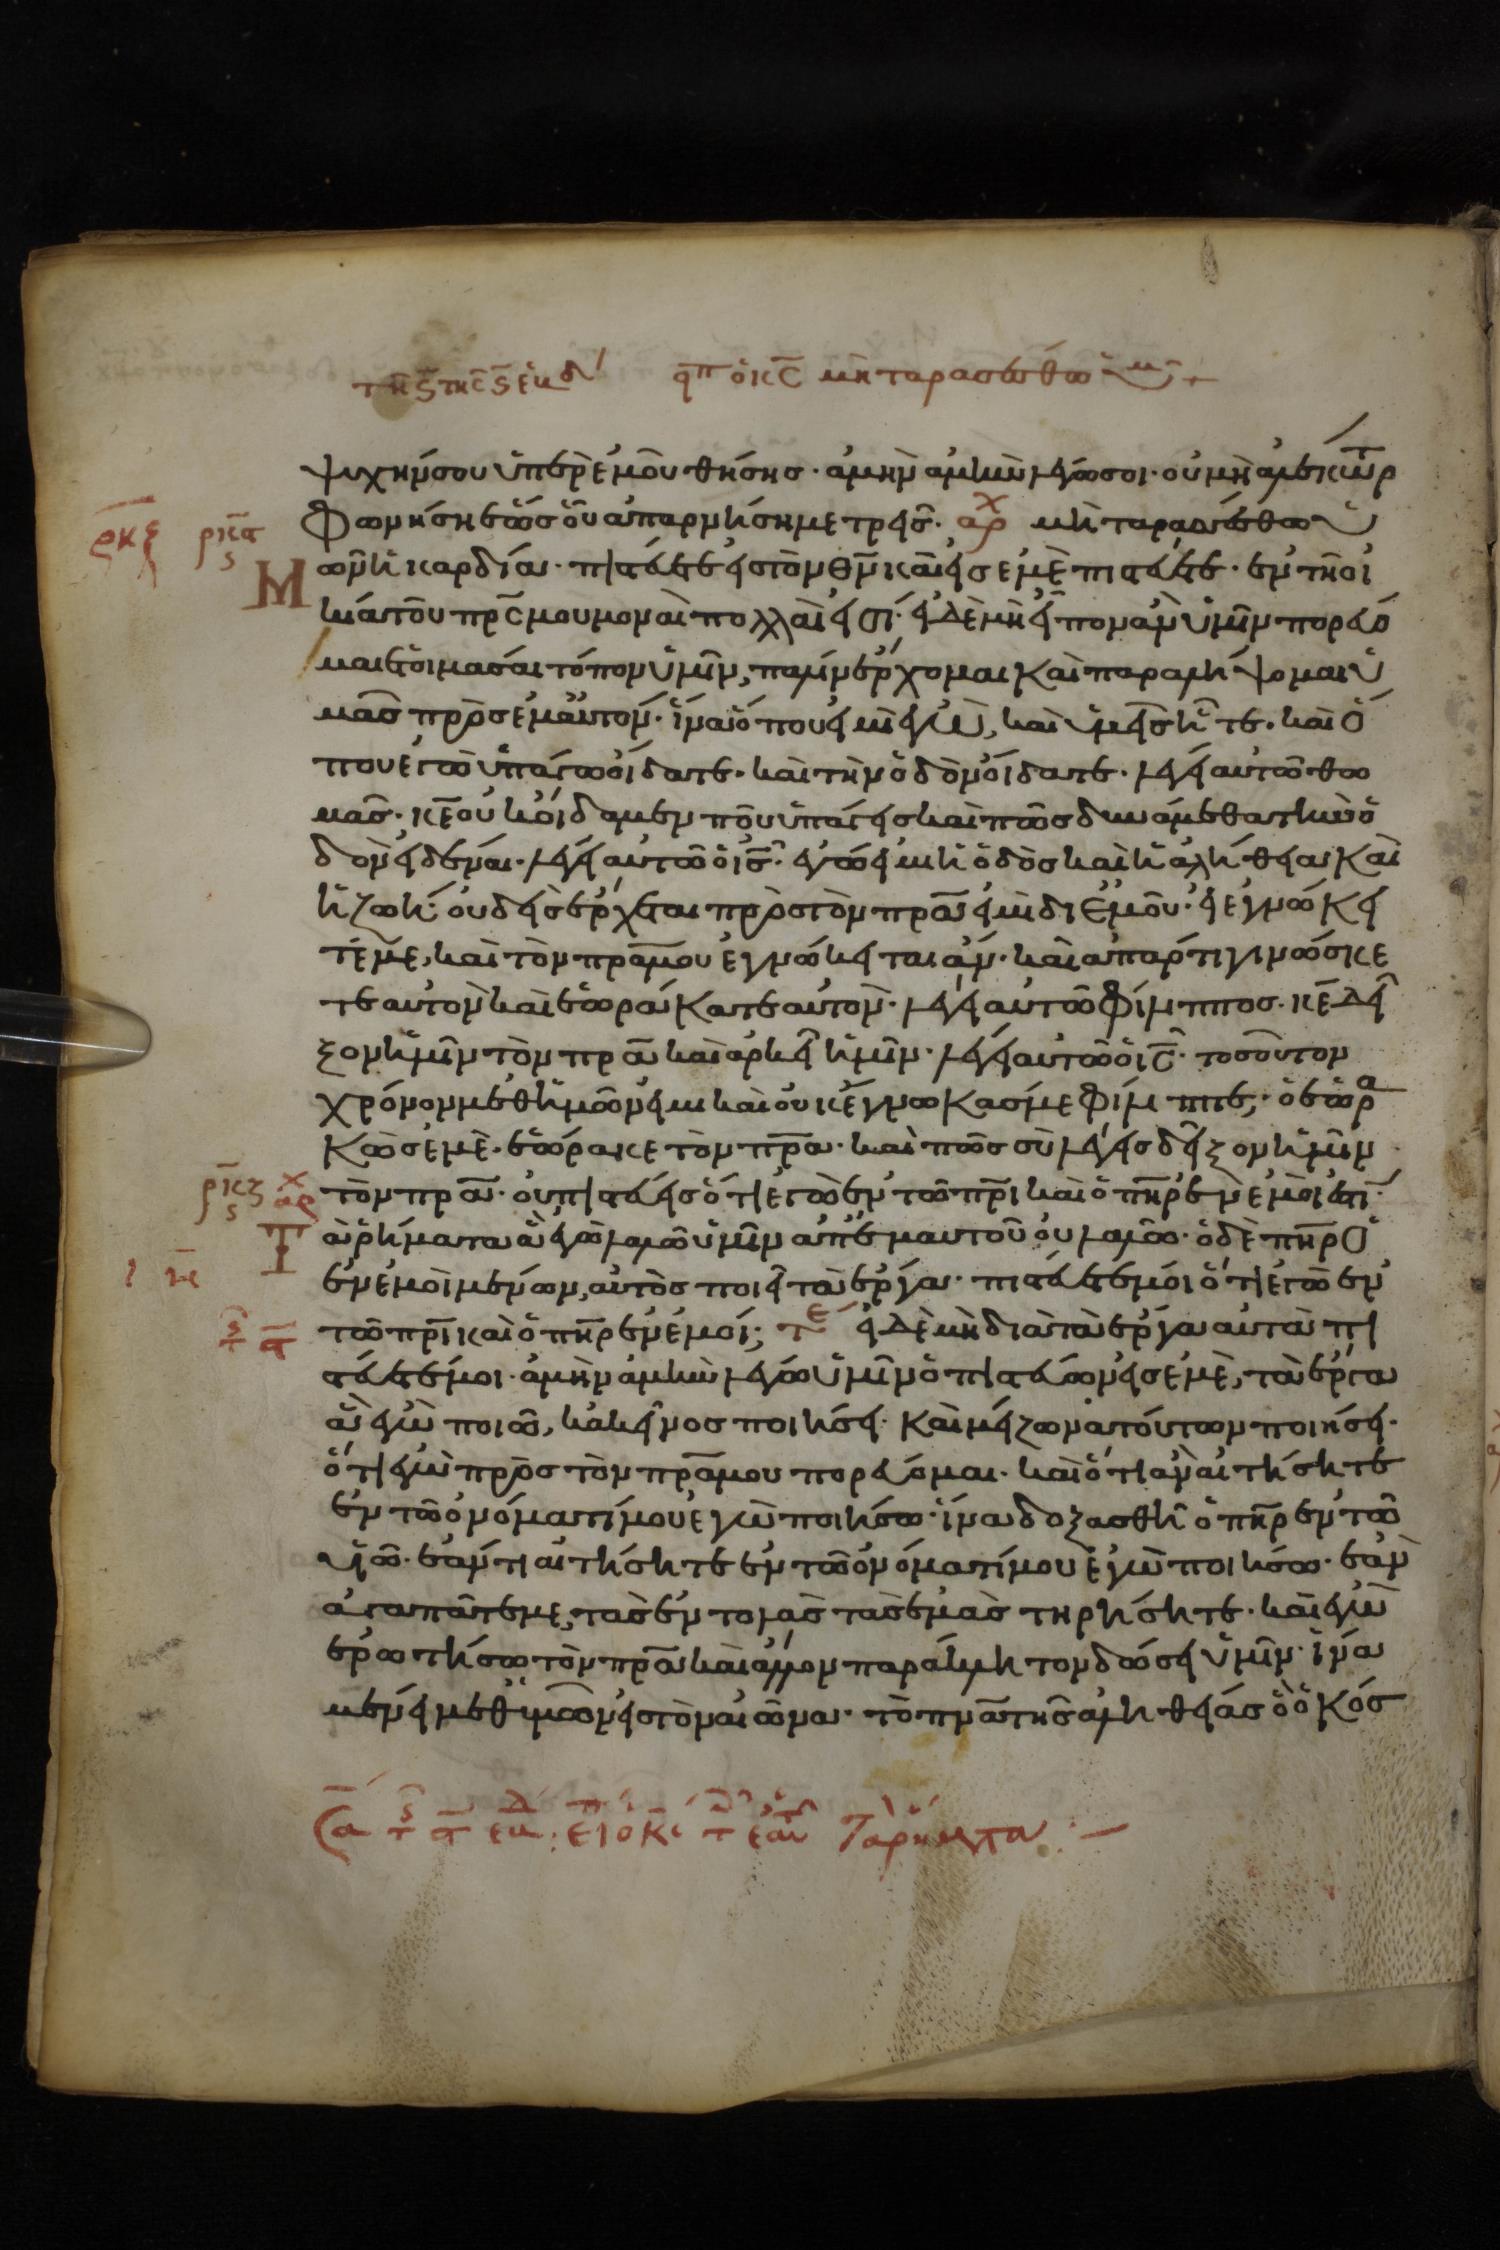 τῆ ϛ τῆς ϛ ἑβδ εἶπ ὁ κς μὴ ταρασσέσθω ὑμ
ψυχήν σου ὑπὲρ ἐμοῦ θήσης· ἀμὴν ἀμὴν λέγω σοι· οὐ μὴ ἀλέκτωρ
φωνήση ἕως οὗ ἀπαρνήση με τρεῖς· αρχ μὴ ταρασσέσθω ὑ
ρκε ρκς ϛ
Μῶν ἡ καρδία· πιστεύετε εἰς τὸν θν καὶ εἰς ἐμὲ πιστεύετε· ἐν τῆ οἰ
κία τοῦ πρς μου μοναὶ πολλαὶ εἰσί· εἰ δὲ μὴ εἶπον ἂν ὑμῖν πορεύο
μαι ἑτοιμάσαι τόπον ὑμῖν, πάλιν ἔρχομαι καὶ παραλήψομαι ὑ
μᾶς πρὸς ἐμαυτόν· ἵνα ὅπου εἰμὶ ἐγὼ, καὶ ὑμεῖς ἦτε· καὶ ὅ
που ἐγὼ ὑπάγω οἴδατε· καὶ τὴν ὁδὸν οἴδατε· λέγει αὐτῶ θω
μᾶς· κε οὐκ οἴδαμεν ποῦ ὑπάγεις καὶ πῶς δυνάμεθα τὴν ὁ
δὸν εἰδέναι· λέγει αὐτῶ ὁ ις· ἐγώ εἰμι ἡ ὁδὸς καὶ ἡ ἀλήθεια καὶ
ἡ ζωή· οὐδεὶς ἔρχεται πρὸς τὸν πρα εἰ μὴ δι ἐμοῦ· εἰ ἐγνώκει
τέ με, καὶ τὸν πρα μου ἐγνώκειτε ἄν· καὶ ἀπάρτι γινώσκε
τε αὐτὸν καὶ ἑωράκατε αὐτόν· λέγει αὐτῶ φίλιππος· κε δεῖ
ξον ἡμῖν τὸν πρα καὶ ἀρκεῖ ἡμῖν· λέγει αὐτῶ ὁ ις· τοσοῦτον
χρόνον μεθ ἡμῶν εἰμι καὶ οὐκ ἔγνωκάς με φίλιππε; ὁ ἑωρα
κὼς ἐμὲ· ἑώρακε τὸν πρα· καὶ πῶς σὺ λέγεις δεῖξον ἡμῖν
ρκζ ϛ αρχ
τὸν πρα· οὐ πιστεύεις ὅτι ἐγὼ ἐν τῶ πρι καὶ ὁ πηρ ἐν ἐμοὶ ἐστί·
Τὰ ῥήματα ἃ ἐγὼ λαλῶ ὑμῖν ἀπ ἐμαυτοῦ οὐ λαλῶ· ὁ δὲ πηρ ὁ
ἐν ἐμοὶ μένων, αὐτὸς ποιεῖ τὰ ἔργα· πιστεύετέ μοι ὅτι ἐγὼ ἐν
τῶ πρι καὶ ὁ πηρ ἐν ἐμοί; τε εἰ δὲ μὴ διὰ τὰ ἔργα αὐτὰ πι
στεύετέ μοι· ἀμὴν ἀμὴν λέγω ὑμῖν ὁ πιστεύων εἰς ἐμὲ, τὰ ἔργα
ἃ ἐγὼ ποιῶ, κἀκεῖνος ποιήσει· καὶ μείζονα τούτων ποιήσει·
ὅτι ἐγὼ πρὸς τὸν πρα μου πορεύομαι· καὶ ὅτι ἂν αἰτήσητε
ἐν τῶ ὀνόματί μου ἐγὼ ποιήσω· ἵνα δοξασθῆ ὁ πηρ ἐν τῶ
υἱῶ· ἐάν τι αἰτήσητε ἐν τῶ ὀνόματί μου ἐγὼ ποιήσω· ἐὰν
ἀγαπᾶτέ με, τὰς ἐντολὰς τὰς ἐμὰς τηρήσητε· καὶ ἐγὼ
ἐρωτήσω τὸν πρα καὶ ἄλλον παράκλητον δώσει ὑμῖν· ἵνα
μένει μεθ ὑμῶν εἰς τὸν αἰῶνα· τὸ πνα τῆς ἀληθείας ὃ ὁ κόσ
Τὰ ῥήματα